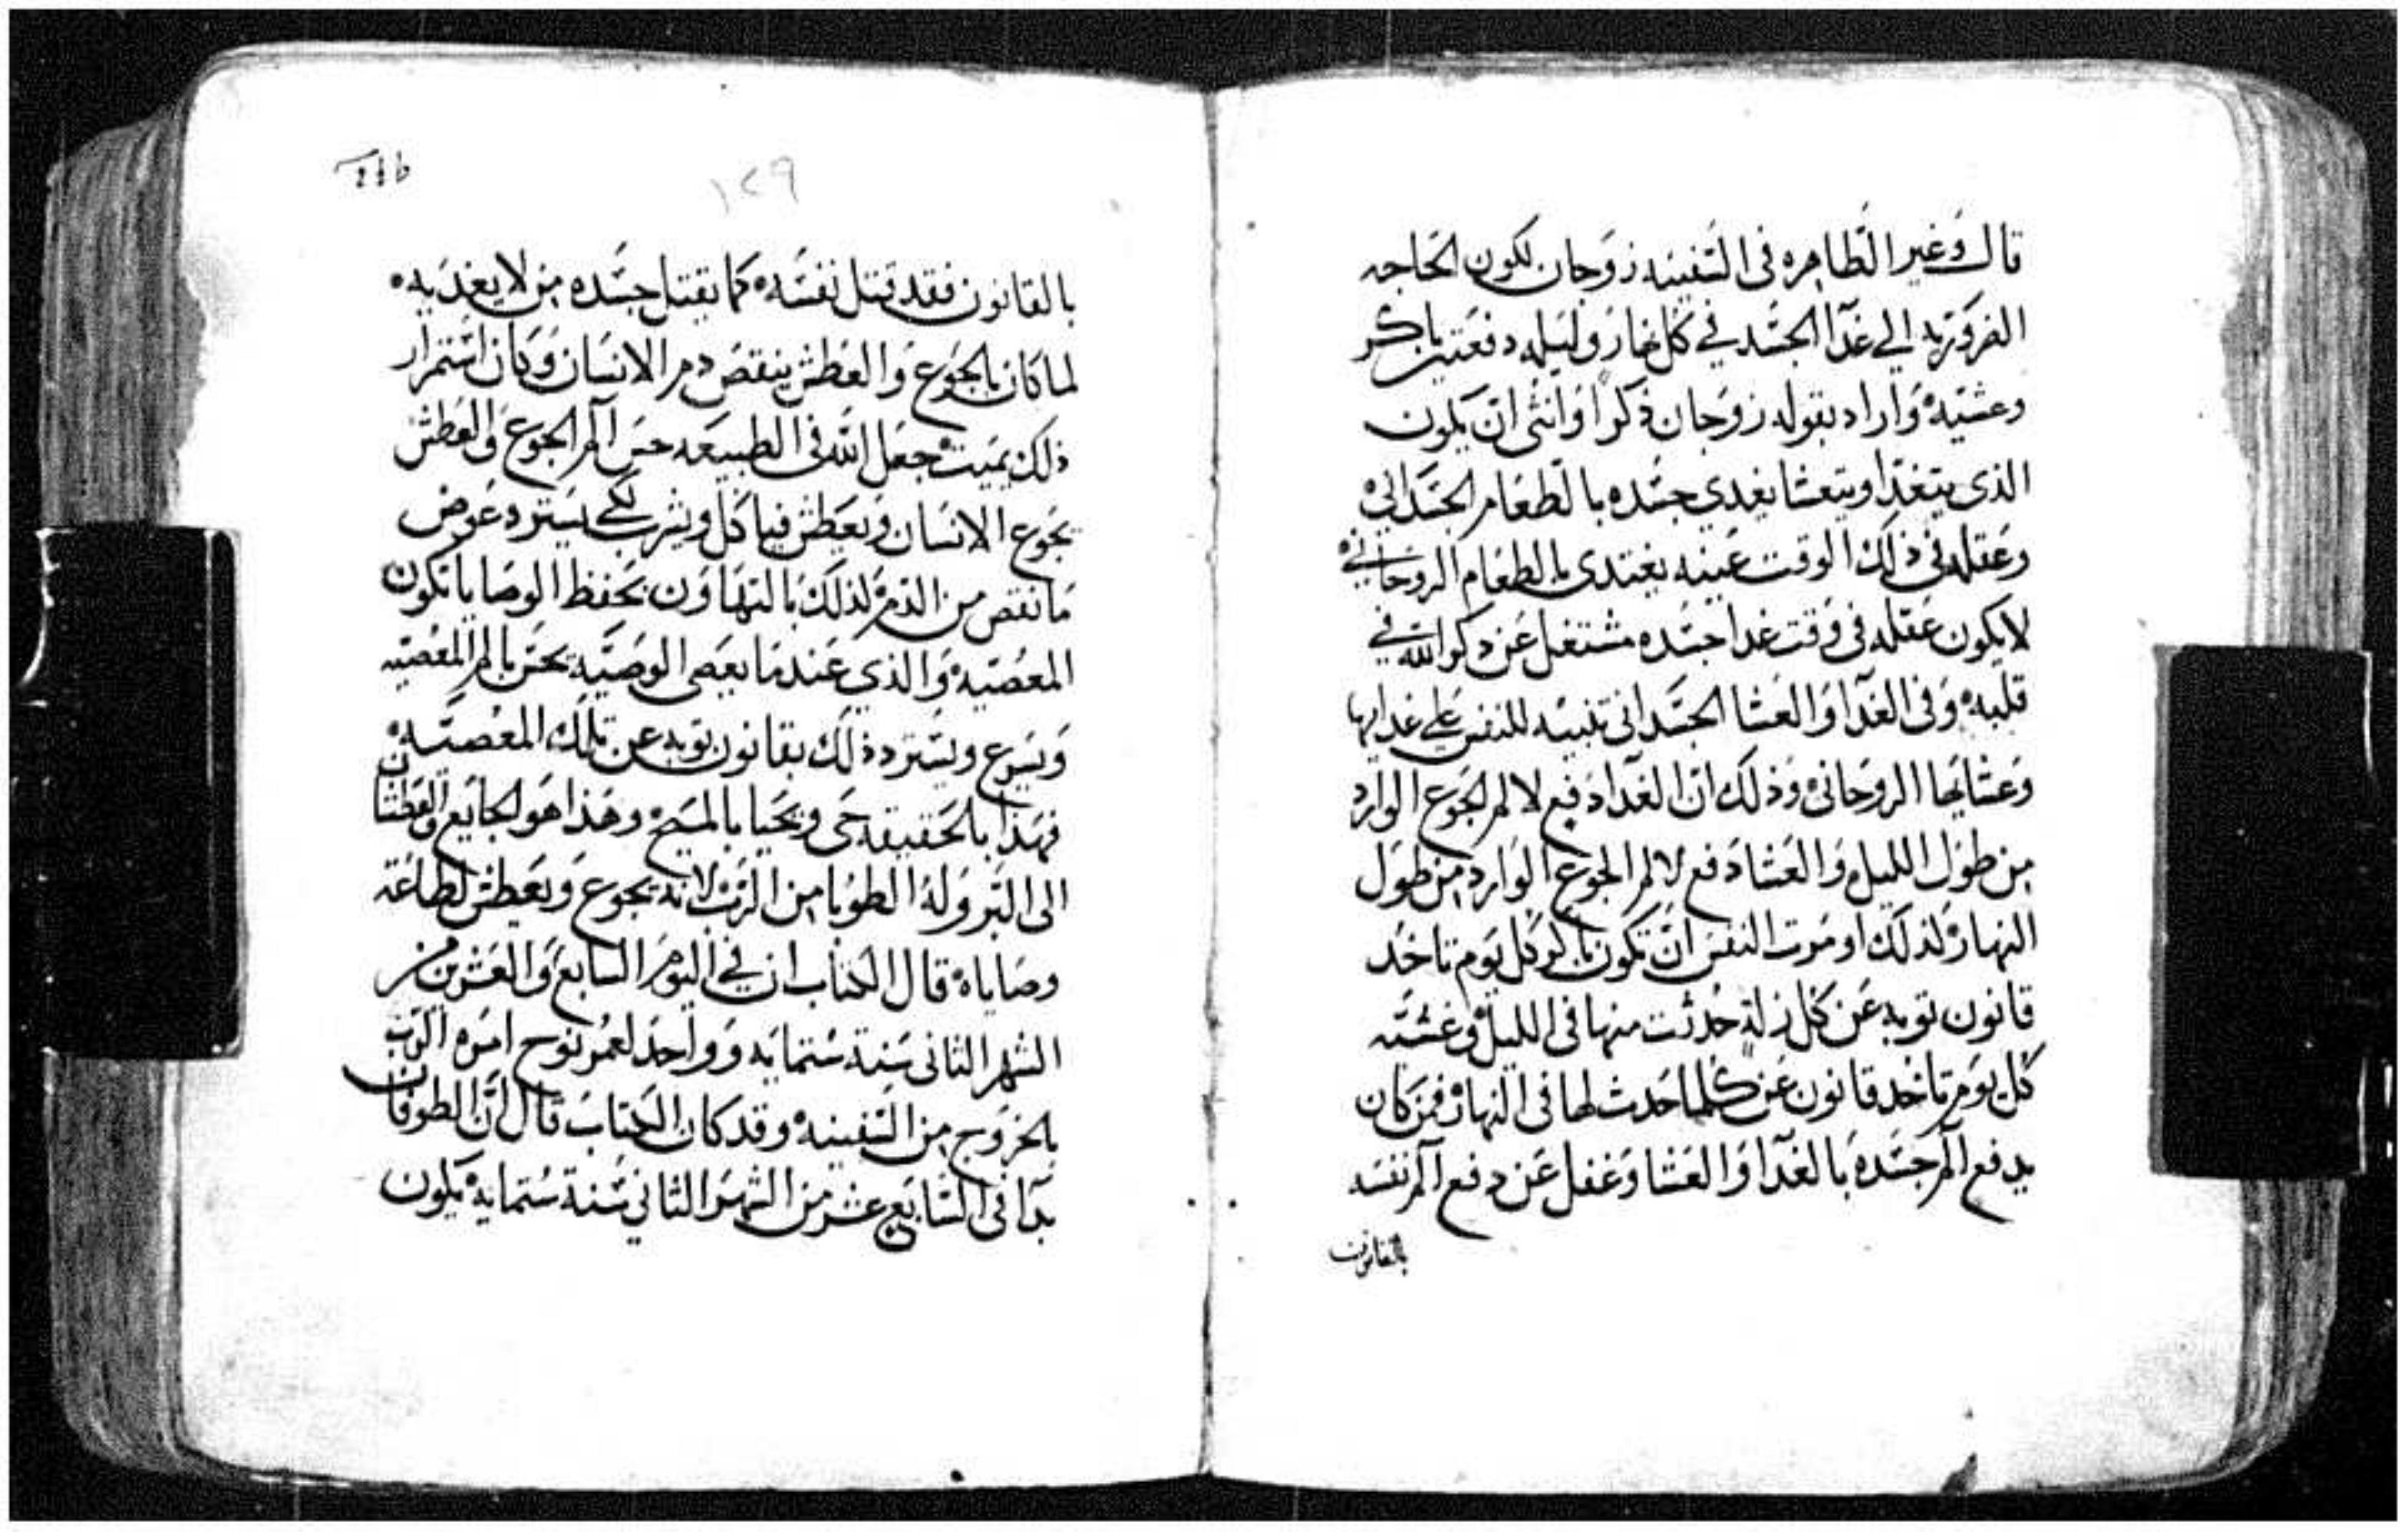 قال وغير الطاهره فى السفينه زوجان لكون الحاجه
الضروريه الي غدآ الجسد في كل نهار وليله دفعتين باكر
وعشيه واراد بقوله زوجان ذكرا وانثى ان يكون
الذى يتغدا ويتعشا يغدي جسده بالطعام الجسدانى
وعقله فى ذلك الوقت عينه يغتدى بالطعام الروحانى
لا يكون عقله فى وقت غدا جسده مشتغل عن دكر الله في
قلبه وفى الغدآ والعشا الجسدانى تنبيه للنفس على غدايها
وعشايها الروحانى وذلك ان الغدا دفع لالم الجوع الوارد
من طول الليل والعشا دفع لالم الجوع الوارد من طول
النهار لذلك اومرت النفس ان تكون باكر كل يوم تاخد
قانون توبه عن كل زلة حدثت منها فى الليل وعشية
كل يوم تاخد قانون عن كلما حدث لها فى النهار فمن كان
يدفع آلم جسده بالغدآ والعشا وغفل عن دفع آلم نفسه
بالقانون
١٢٩
بالقانون فقد قتل نفسه كما يقتل جسده من لا يغديه
لما كان بالجوع والعطش ينقص دم الانسان وكان استمرار
ذلك يميت جعل الله فى الطبيعه حس آلم الجوع والعطش
يجوع الانسان ويعطش فياكل ويشرب لكي يسترد عوض
ما نقص من الدم لذلك بالتهاون بحفظ الوصايا تكون
المعصيه والذي عندما يعصى الوصيه يحس بالم المعصيه
ويسرع ويسترد ذلك بقانون توبه عن تلك المعصيه
فهذا بالحقيقه حى ويحيا بالمسيح وهذا هو الجايع والعطشان
الى البر وله الطوبا من الرب لانه يجوع ويعطش لطاعة
وصاياه قال الكتاب ان في اليوم السابع والعشرين من
الشهر الثانى سنة ستمايه وواحد لعمر نوح امره الرب
بالخروج من السفينه وقد كان الكتاب قال ان الطوفان
بدا فى السابع عشر من الشهر الثاني سنة ستمايه يكون